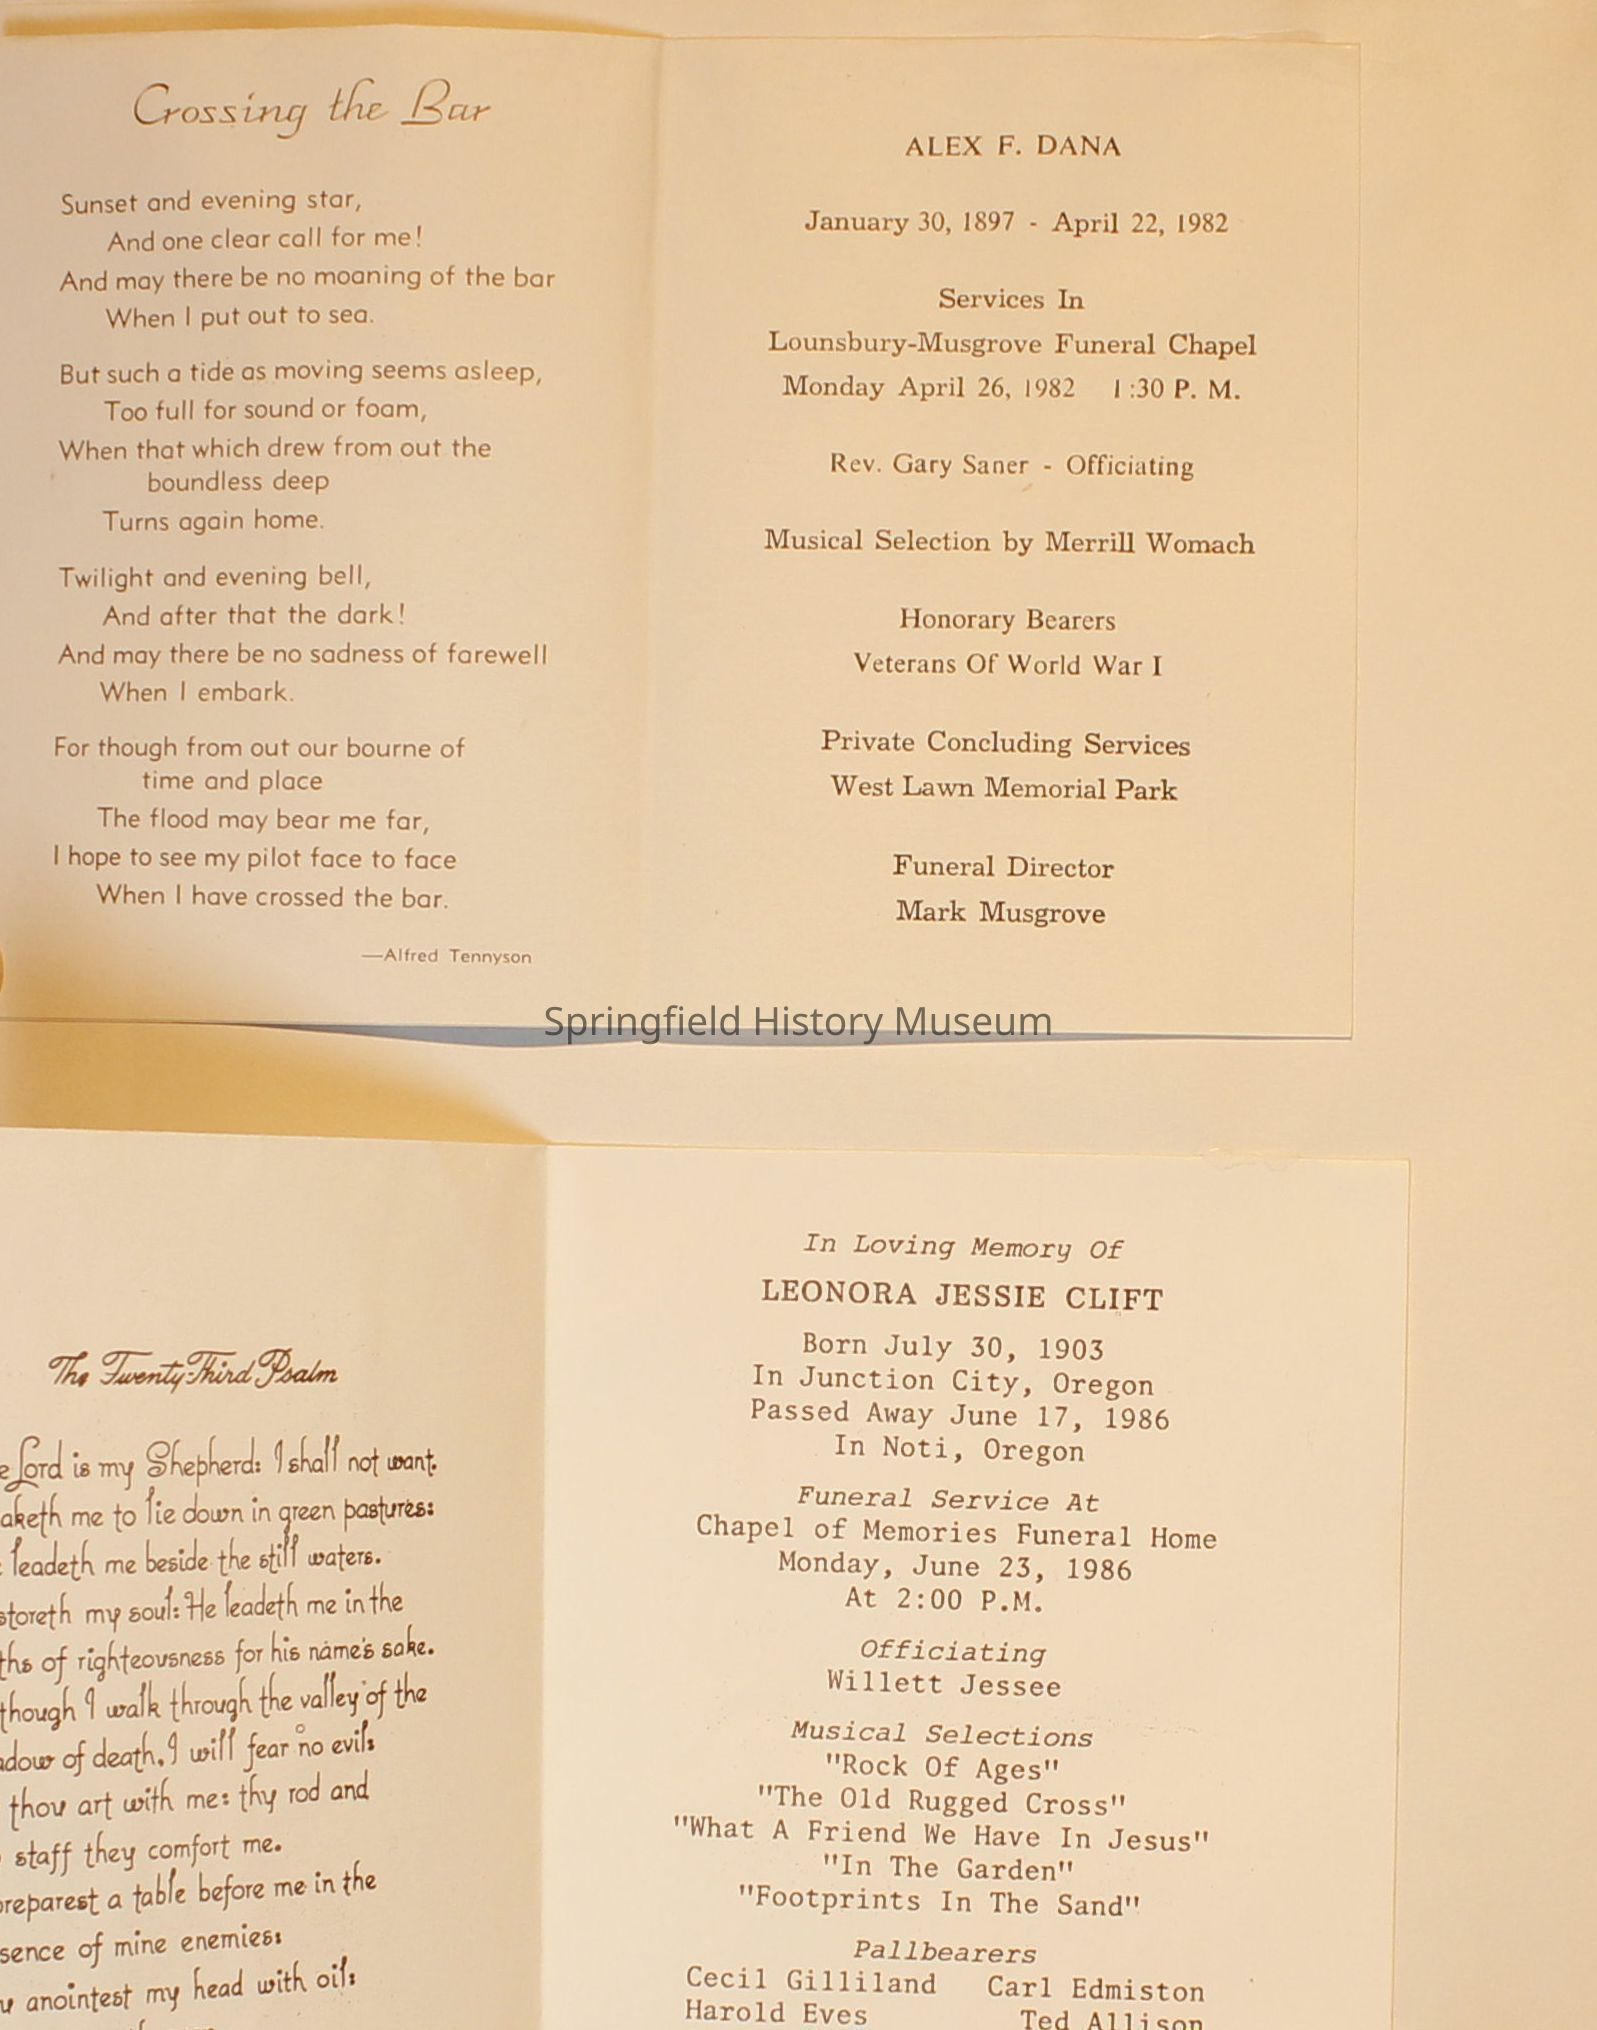 Crossing the Bar
Sunset and evening star,
And one clear call for me!
And may there be no moaning of the bar
When I put out to sea.
But such a tide as moving seems asleep,
Too full for sound or foam,
When that which drew from out the
boundless deep
Turns again home.
Twilight and evening bell,
And after that the dark!
And may there be no sadness of farewell
When I embark.
For though from out our bourne of
time and place
The flood may bear me far,
I hope to see my pilot face to face
When I have crossed the bar.
—Alfred Tennyson
ALEX F. DANA
January 30, 1897 - April 22, 1982
Services In
Lounsbury-Musgrove Funeral Chapel
Monday April 26, 1982 1:30 P. M.
Rev. Gary Saner - Officiating
Musical Selection by Merrill Womach
Honorary Bearers
Veterans Of World War I
Private Concluding Services
West Lawn Memorial Park
Funeral Director
Mark Musgrove
Springfield History Museum
The Twenty-Third Psalm
e Lord is my Shepherd: I shall not want.
aketh me to lie down in green pastures:
leadeth me beside the still waters.
storeth my soul: He leadeth me in the
ths of righteousness for his name's sake.
though I walk through the valley of the
adow of death, I will fear no evil:
thou art with me: thy rod and
staff they comfort me.
preparest a table before me in the
sence of mine enemies:
u anointest my head with oil:
In Loving Memory Of
LEONORA JESSIE CLIFT
Born July 30, 1903
In Junction City, Oregon
Passed Away June 17, 1986
In Noti, Oregon
Funeral Service At
Chapel of Memories Funeral Home
Monday, June 23, 1986
At 2:00 P.M.
Officiating
Willett Jessee
Musical Selections
"Rock Of Ages"
"The Old Rugged Cross"
"What A Friend We Have In Jesus"
"In The Garden"
"Footprints In The Sand"
Pallbearers
Cecil Gilliland Carl Edmiston
Harold Eves Ted Allison